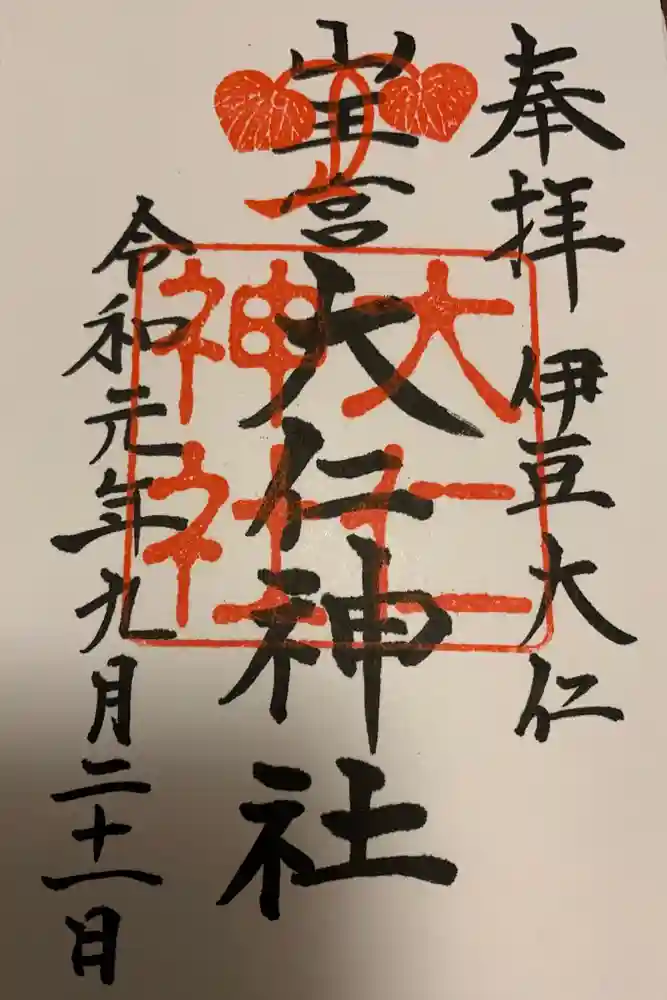 奉拝 伊豆大仁
山王宮 大仁神社
大仁
神社
令和元年九月二十一日